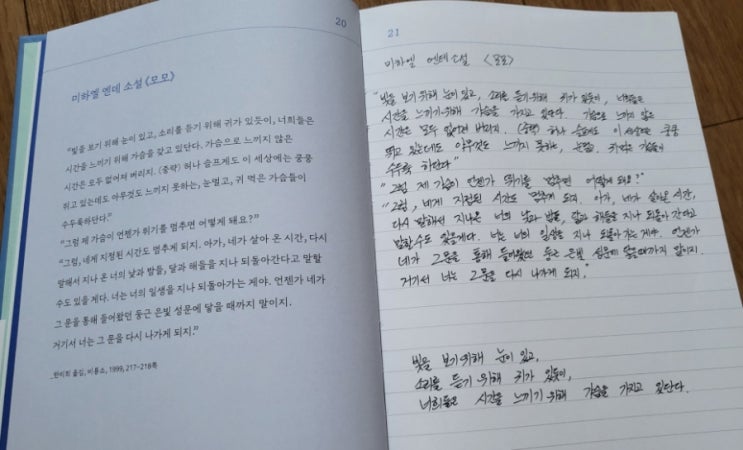 20
미하엘 엔데 소설 《모모》
“빛을 보기 위해 눈이 있고, 소리를 듣기 위해 귀가 있듯이, 너희들은
시간을 느끼기 위해 가슴을 갖고 있단다. 가슴으로 느끼지 않은
시간은 모두 없어져 버리지. (중략) 허나 슬프게도 이 세상에는 쿵쿵
뛰고 있는데도 아무것도 느끼지 못하는, 눈멀고, 귀 먹은 가슴들이
수두룩하단다.”
“그럼 제 가슴이 언젠가 뛰기를 멈추면 어떻게 돼요?”
“그럼, 네게 지정된 시간도 멈추게 되지. 아가, 네가 살아 온 시간, 다시
말해서 지나 온 너의 낮과 밤들, 달과 해들을 지나 되돌아간다고 말할
수도 있을 게다. 너는 너의 일생을 지나 되돌아가는 게야. 언젠가 네가
그 문을 통해 들어왔던 둥근 은빛 성문에 닿을 때까지 말이지.
거기서 너는 그 문을 다시 나가게 되지.”
_한미희 옮김, 비룡소, 1999, 217-218쪽
21
미하엘 엔데 소설 《모모》
“빛을 보기 위해 눈이 있고, 소리를 듣기 위해 귀가 있듯이, 너희들은
시간을 느끼기 위해 가슴을 가지고 있단다. 가슴으로 느끼지 않은
시간은 모두 없어져 버리지. (중략) 허나 슬프게도 이 세상에는 쿵쿵
뛰고 있는데도 아무것도 느끼지 못하는, 눈멀고, 귀먹은 가슴들이
수두룩 하단다.”
“그럼 제 가슴이 언젠가 뛰기를 멈추면 어떻게 돼요?”
“그럼, 네게 지정된 시간도 멈추게 되지. 아가, 네가 살아온 시간,
다시 말해서 지나온 너의 낮과 밤들, 달과 해들을 지나 되돌아 간다고
말할수도 있을게다. 너는 너의 일생을 지나 되돌아 가는 게야. 언젠가
네가 그 문을 통해 들어왔던 둥근 은빛 성문에 닿을때까지 말이지.
거기서 너는 그 문을 다시 나가게 되지.”
빛을 보기 위해 눈이 있고,
소리를 듣기 위해 귀가 있듯이,
너희들은 시간을 느끼기 위해 가슴을 가지고 있단다.